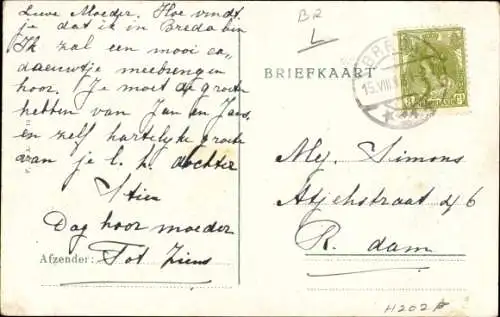 Lieve Moeder. Hoe vindt
je dat ik in Breda ben
Ik zal een mooi ca
deautje meebrengen
hoor. Je moet de groete
hebben van Jan en Jans,
en zelf hartelijke groete
van je l. h. dochter
Stien
Dag hoor moeder
Afzender: Tot Ziens
BR
BRIEFKAART
BR
15.VIII
Mej. Simons
Atjehstraat
R. dam
H202